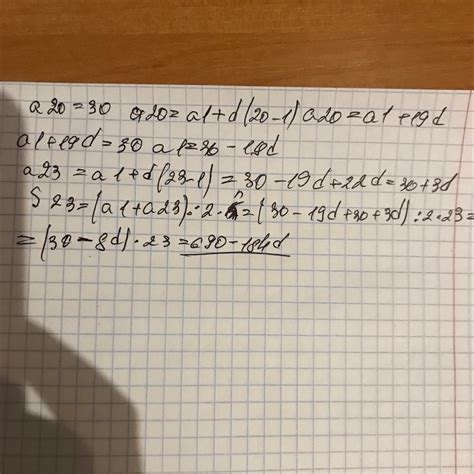 a20=30 a20=a1+d(20-1) a20=a1+19d
a1+19d=30 a1=30-19d
a23=a1+d(23-1)=30-19d+22d=30+3d
S23=(a1+a23):2·n=(30-19d+30+3d):2·23=
=(30-8d)·23=690-184d